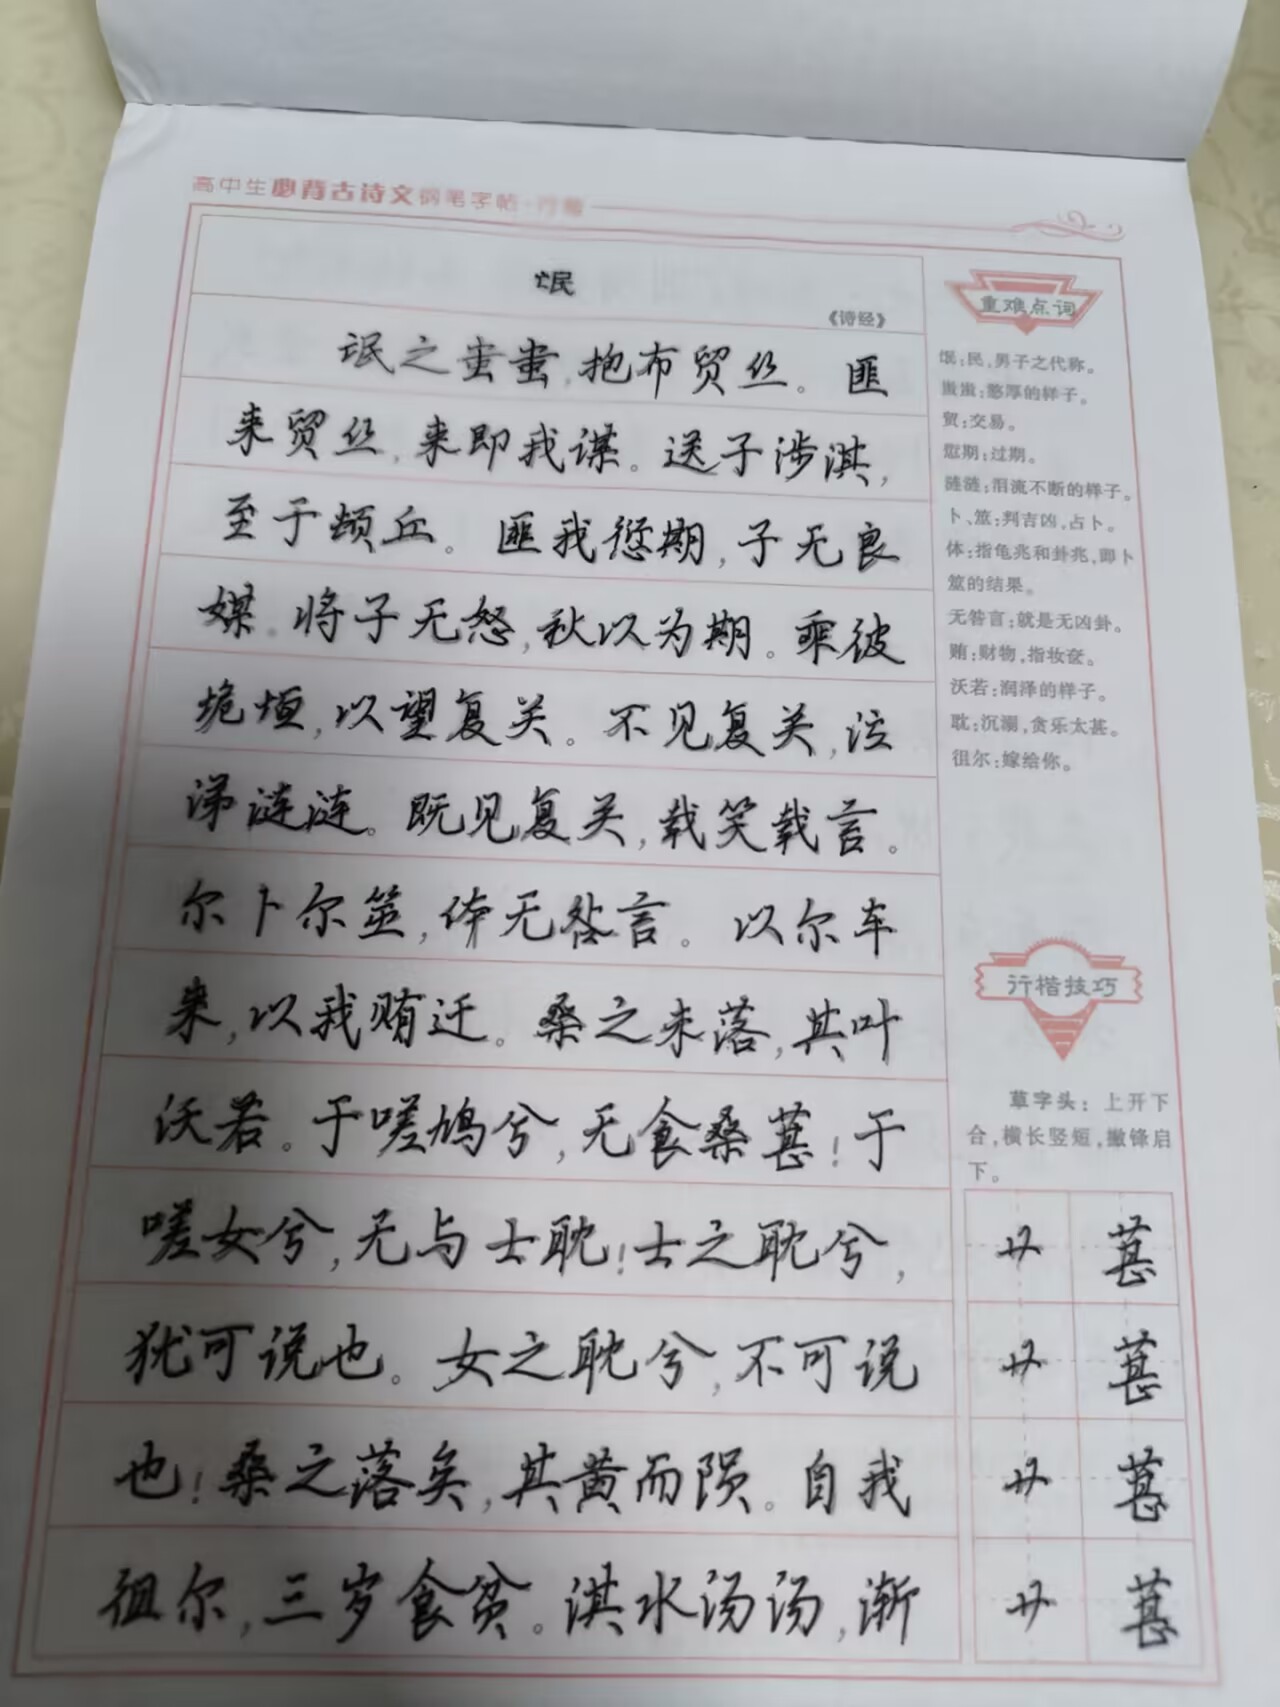 高中生必背古诗文钢笔字帖·行楷
氓
《诗经》
氓之蚩蚩,抱布贸丝。匪
来贸丝,来即我谋。送子涉淇,
至于顿丘。匪我愆期,子无良
媒。将子无怒,秋以为期。乘彼
垝垣,以望复关。不见复关,泣
涕涟涟。既见复关,载笑载言。
尔卜尔筮,体无咎言。以尔车
来,以我贿迁。桑之未落,其叶
沃若。于嗟鸠兮,无食桑葚!于
嗟女兮,无与士耽!士之耽兮,
犹可说也。女之耽兮,不可说
也!桑之落矣,其黄而陨。自我
徂尔,三岁食贫。淇水汤汤,渐
重难点词
氓:民,男子之代称。
蚩蚩:憨厚的样子。
贸:交易。
愆期:过期。
涟涟:泪流不断的样子。
卜、筮:判吉凶,占卜。
体:指龟兆和卦兆,即卜
筮的结果。
无咎言:就是无凶卦。
贿:财物,指妆奁。
沃若:润泽的样子。
耽:沉溺,贪乐太甚。
徂尔:嫁给你。
行楷技巧
草字头:上开下
合,横长竖短,撇锋启
下。
艹 葚
艹 葚
艹 葚
艹 葚